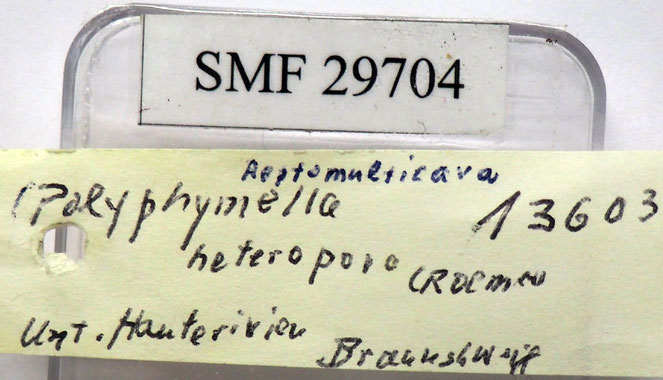 SMF 29704
Reptomulticava
(Polyphymella 13603
heteropora (Roemer
Unt. Hauterivien Braunschweig